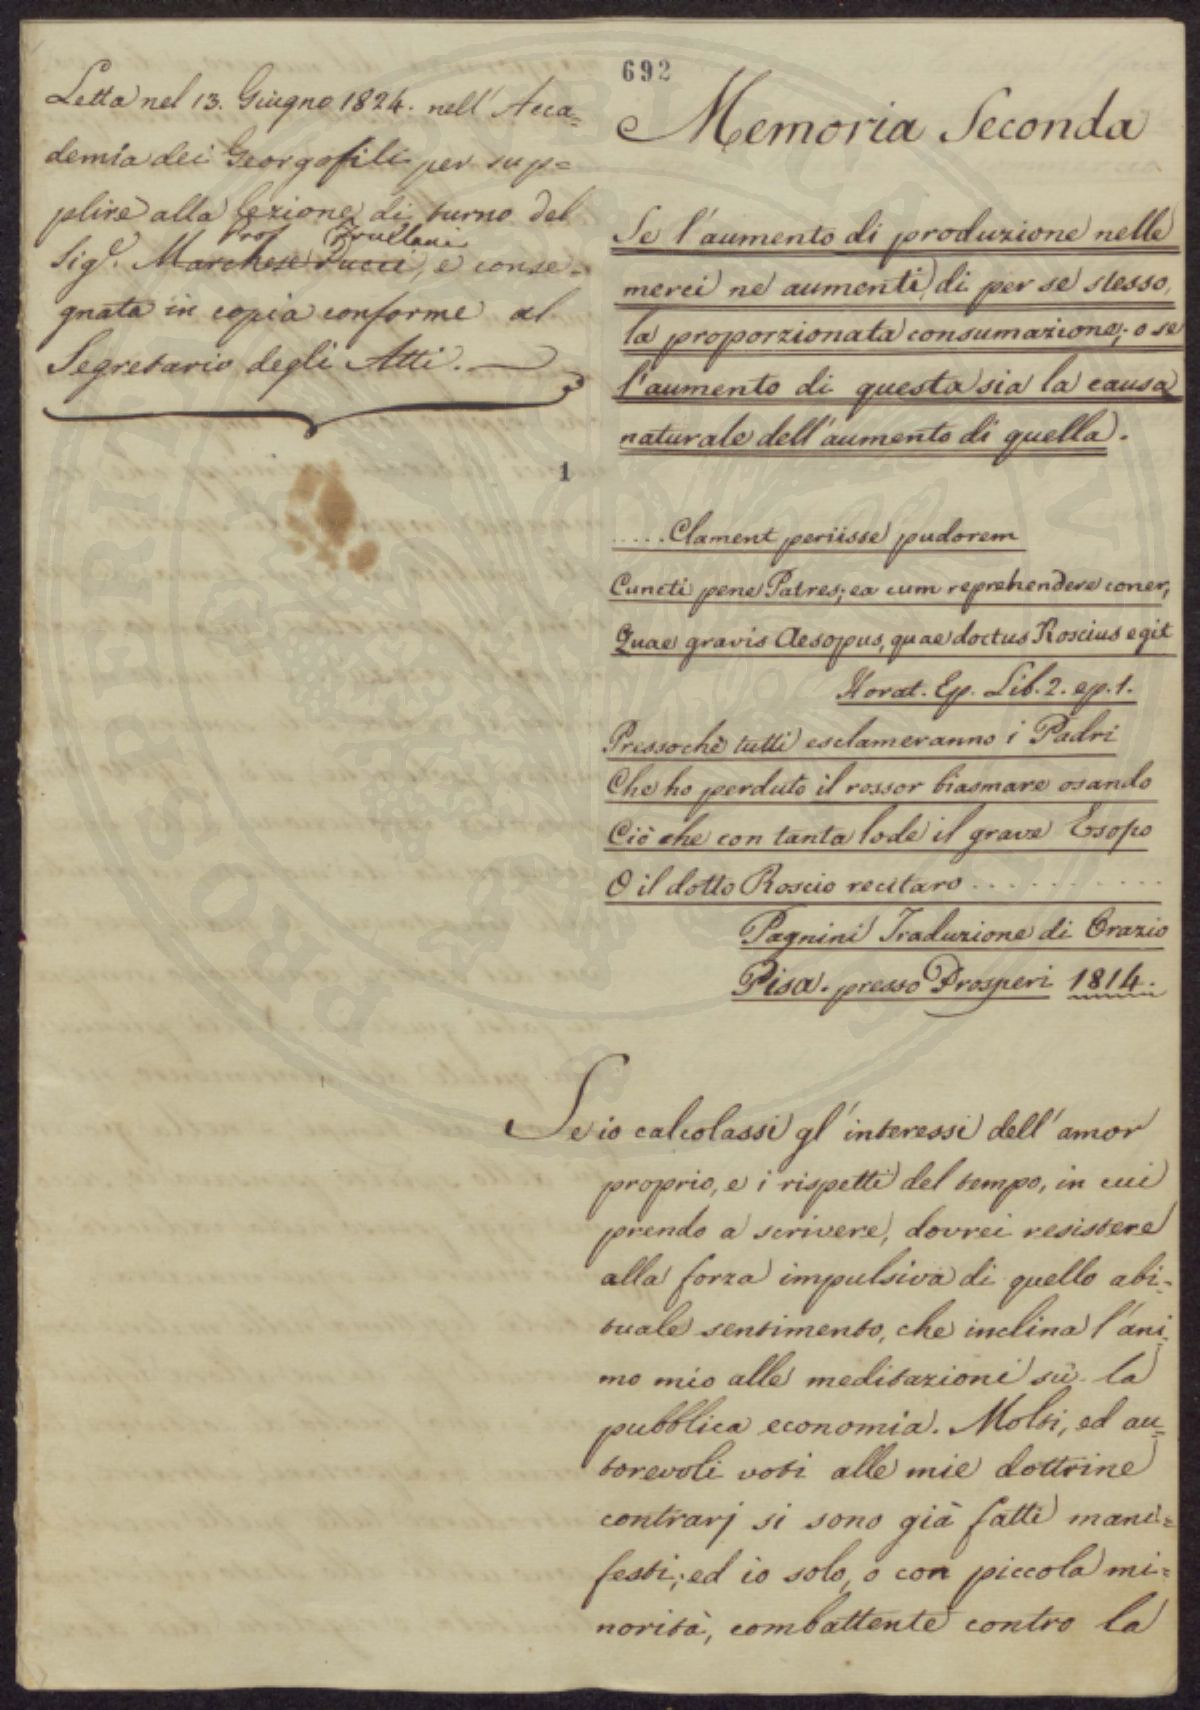 692
Letta nel 13. Giugno 1824. nell' Acca=
demia dei Georgofili per sup=
plire alla lezione di turno del
Prof. Frullani
Sig.e Marchese Pucci, e conse=
gnata in copia conforme al
Segretario degli Atti.
1
Memoria Seconda
Se l'aumento di produzione nelle
merci ne aumenti di per se stesso
la proporzionata consumazione; o se
l'aumento di questa sia la causa
naturale dell'aumento di quella.
.....Clament periisse pudorem
Cuncti pene Patres; ea cum reprehendere coner,
Quae gravis Aesopus, quae doctus Roscius egit
Horat. Ep. Lib. 2. ep. 1.
Pressochè tutti esclameranno i Padri
Che ho perduto il rossor biasmare osando
Ciò che con tanta lode il grave Esopo
O il dotto Roscio recitaro...........
Pagnini Traduzione di Orazio
Pisa. presso Prosperi 1814.
Se io calcolassi gl'interessi dell'amor
proprio, e i rispetti del tempo, in cui
prendo a scrivere, dovrei resistere
alla forza impulsiva di quello abi=
tuale sentimento, che inclina l'ani=
mo mio alle meditazioni sù la
pubblica economia. Molti, ed au=
torevoli voti alle mie dottrine
contrarj si sono già fatti mani=
festi; ed io solo, o con piccola mi=
norità, combattente contro la